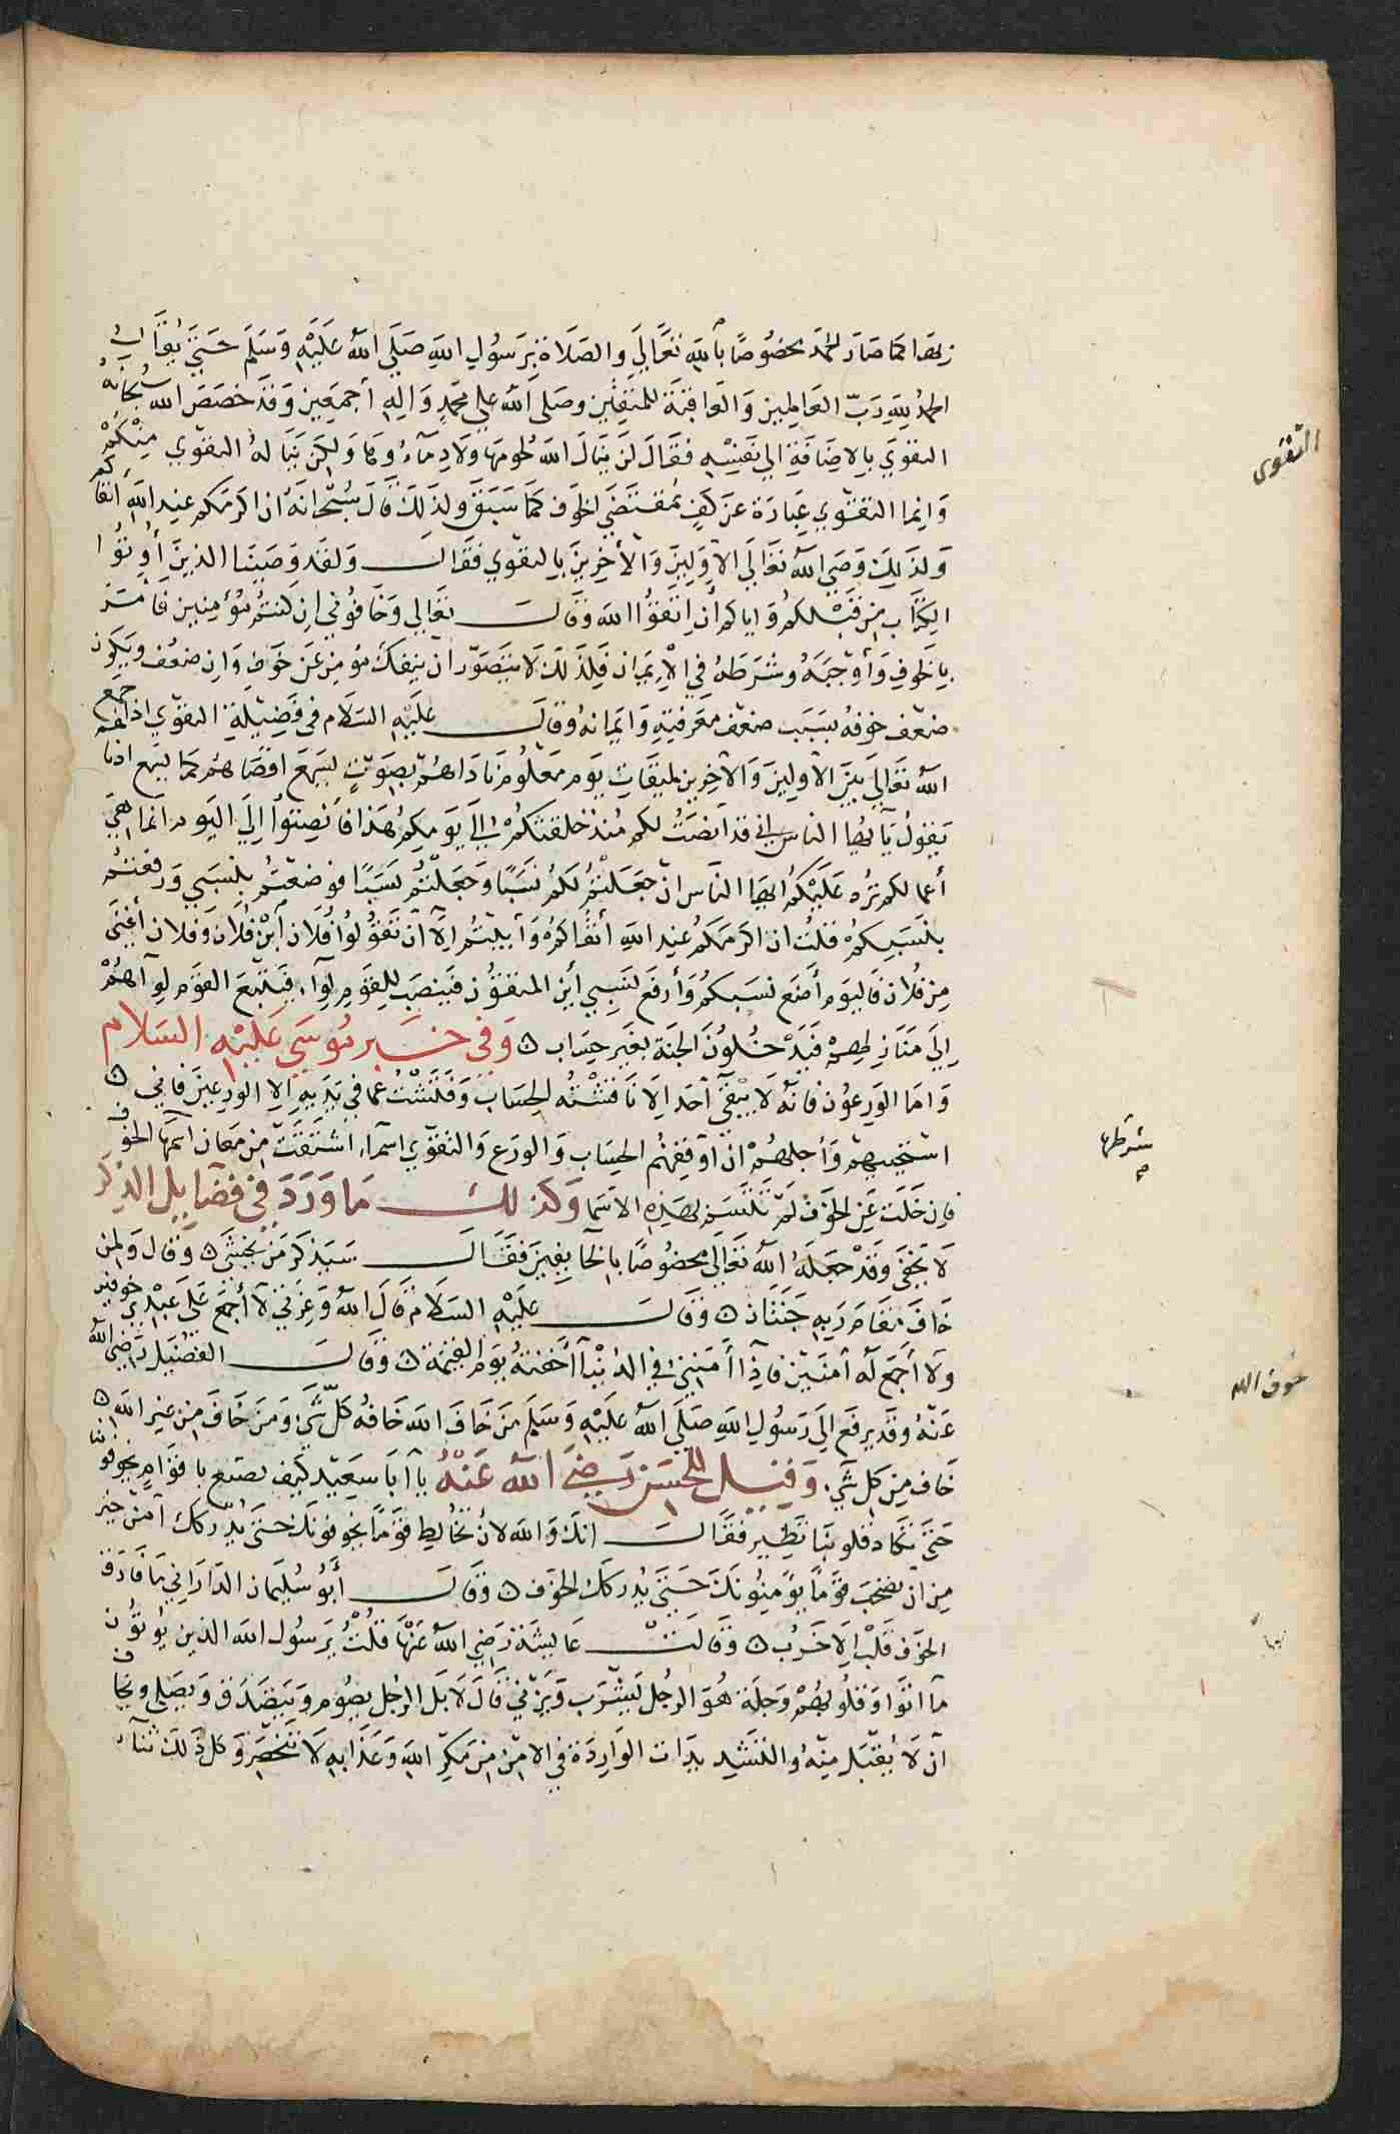 بها كما صار الحمد مخصوصا بالله تعالي والصلاة برسول الله صلي الله عليه وسلم حتي يقال
الحمد لله رب العالمين والعاقبة للمتقين وصلي الله علي محمد واله اجمعين وقد خصص الله سبحانه
التقوي بالاضافة الي نفسه فقال لن ينال الله لحومها ولا دماءوها ولكن يناله التقوي منكم
وانما التقوي عبارة عن كف بمقتضي الخوف كما سبق ولذلك قال سبحانه ان اكرمكم عند الله اتقاكم
ولذلك وصي الله تعالي الاولين والاخرين بالتقوي فقال ولقد وصينا الذين أوتوا
الكتاب من قبلكم واياكم أن اتقوا الله وقال تعالي وخافوني ان كنتم مؤمنين فامر
بالخوف وأوجبه وشرطه في الايمان فلذلك لا يتصور ان ينفك مؤمن عن خوف وان ضعف ويكون
ضعف خوفه بسبب ضعف معرفته وايمانه وقال عليه السلام في فضيلة التقوي اذا جمع
الله تعالي بين الاولين والاخرين لميقات يوم معلوم ناداهم بصوت يسمع اقصاهم كما يسمع ادناهم
يقول يآ ايها الناس اني قد انصت لكم منذ خلقتكم الي يومكم هذا فانصتوا الي اليوم انما هي
أعمالكم ترد عليكم ايها الناس اني جعلتم لكم نسبا وجعلتم نسبا فوضعتم نسبي ورفعتم
نسبكم قلت ان اكرمكم عند الله أتقاكم وأبيتم الا ان تقولوا فلان ابن فلان وفلان أغني
من فلان فاليوم أضع نسبكم وأرفع نسبي أين المتقون فينصب للقوم لواء فيتبع القوم لواءهم
الي منازلهم فيدخلون الجنة بغير حساب ن وفي خبر موسي عليه السلام
واما الورعون فانه لا يبقي أحد الا نافشته الحساب وفتشت عما في يديه الا الورعين فاني ن
استحييهم وأجلهم ان أوقفهم الحساب والورع والتقوي اسماء اشتقت من معان اسمها الخوف
فان خلت عن الخوف لم تتسم بهذه الاسما وكذلك ما ورد في فضايل الذكر
لا يخفي وقد جعله الله تعالي مخصوصا بالخايفين فقال سيذكر من يخشي ن وقال ولمن
خاف مقام ربه جنتان ن وقال عليه السلام قال الله وعزتي لا أجمع علي عبدي خوفين
ولا أجمع له أمنين فاذا أمنني في الدنيا أخفته يوم القيمة ن وقال الفضيل رضي الله
عنه وقد يرفع الي رسول الله صلي الله عليه وسلم من خاف الله خافه كل شي ومن خاف من غير الله ن
خاف من كل شي وقيل للحسن رضي الله عنه يآ أبا سعيد كيف نصنع باقوام يخوفوننا
حتي تكاد قلوبنا تطير فقال انك والله لان تخالط قوما يخوفونك حتي يدركك آمن خير
من ان تصحب قوما يؤمنونك حتي يدركك الخوف ن وقال أبو سليمان الداراني ما فارق
الخوف قلب الا خرب ن وقالت عايشة رضي الله عنها قلت يرسول الله الذين يؤتون
ما اتوا وقلوبهم وجلة هو الرجل يشرب ويزني قال لا بل الرجل يصوم ويتصدق ويصلي ويخاف
أن لا يقبل منه والتشديدات الواردة في الامن من مكر الله وعذابه لا تنحصر وكل ذلك ثناء
التقوى
شرطها
خوف الله